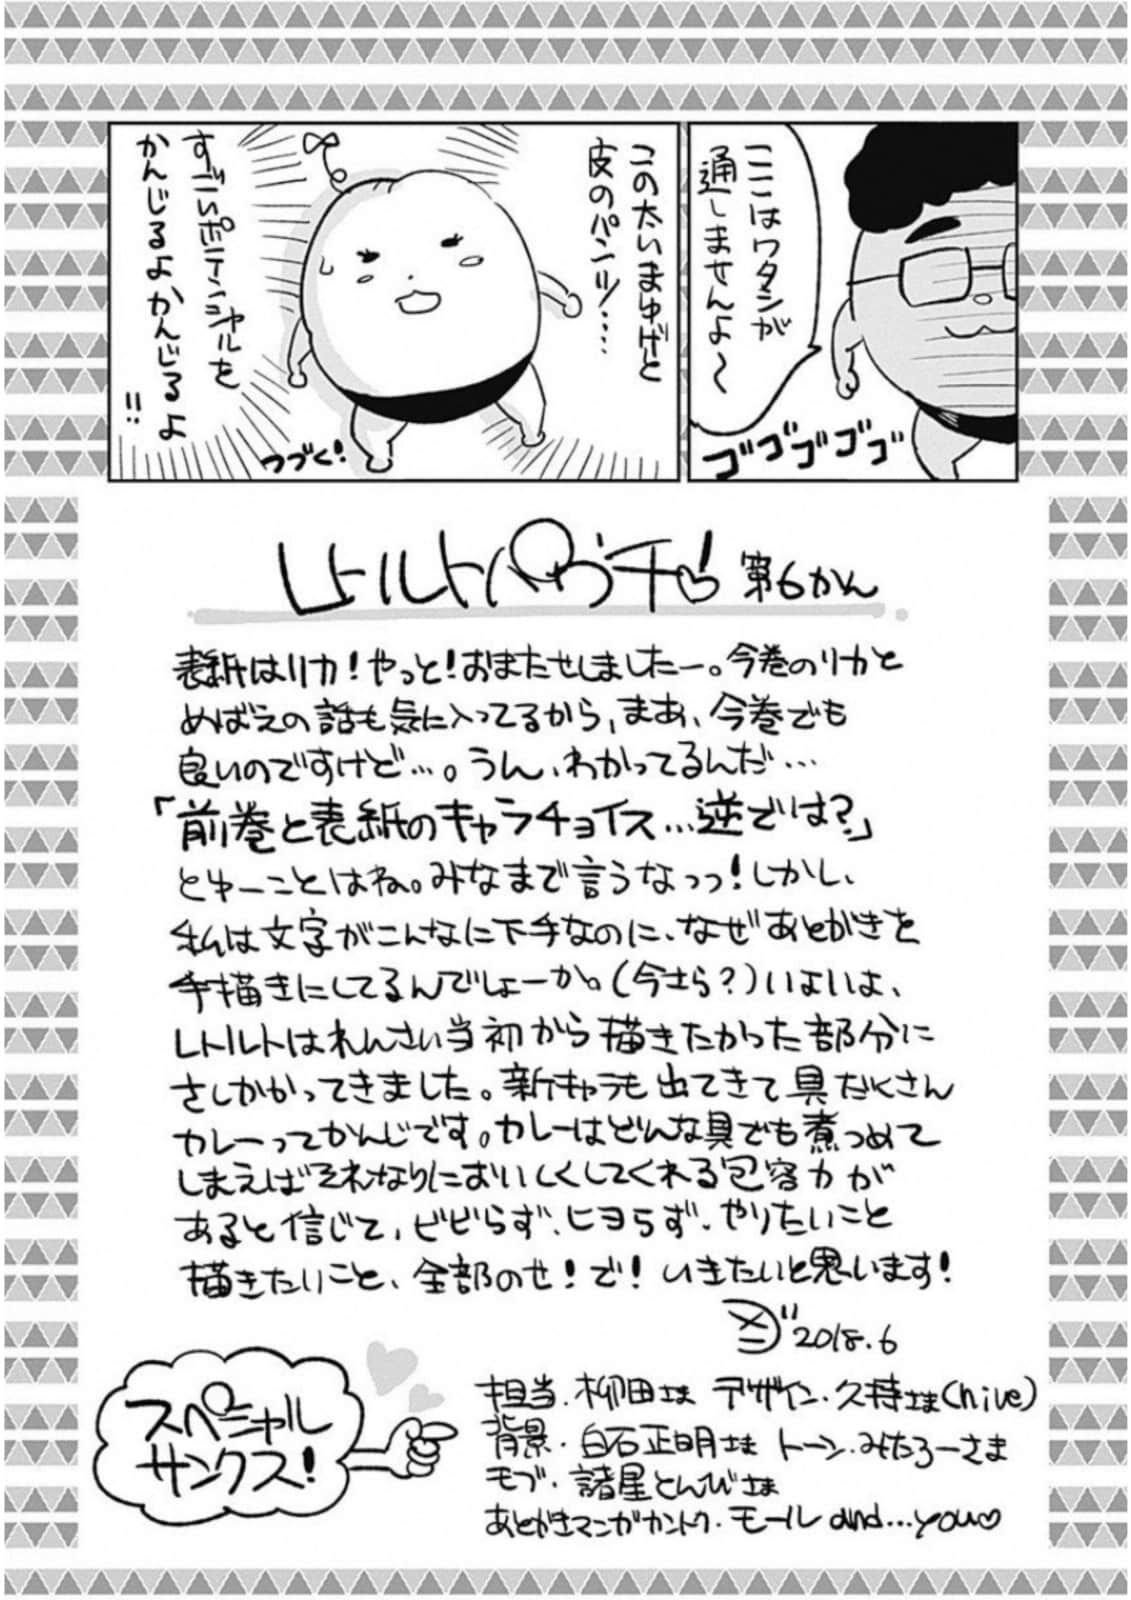 ここはワタシが
通しませんよ〜
ゴゴゴゴゴ
この太いまゆげと
皮のパンツ・・・・
すごいポテンシャルを
かんじるよかんじるよ
!!
つづく!
レトルトパウチ! 第6かん
表紙はリカ!やっと!おまたせしましたー。今巻のリカと
めばえの話も気に入ってるから、まあ、今巻でも
良いのですけど…。うん、わかってるんだ…
「前巻と表紙のキャラチョイス…逆では?」
とゆーことはね。みなまで言うなっっ!しかし、
私は文字がこんなに下手なのに、なぜあとがきを
手描きにしてるんでしょーか。(今さら?)いよいよ、
レトルトはれんさい当初から描きたかった部分に
さしかかってきました。新キャラも出てきて具だくさん
カレーってかんじです。カレーはどんな具でも煮つめて
しまえばそれなりにおいしくしてくれる包容力が
あると信じて、ビビらず、ヒヨらず、やりたいこと
描きたいこと、全部のせ!で!いきたいと思います!
2018.6
スペシャル
サンクス!
担当・柳田さま デザイン・久持さま(hive)
背景・白石正明さま トーン・みたろーさま
モブ・諸星とんびさま
あとがきマンガカントク・モール and…you♡